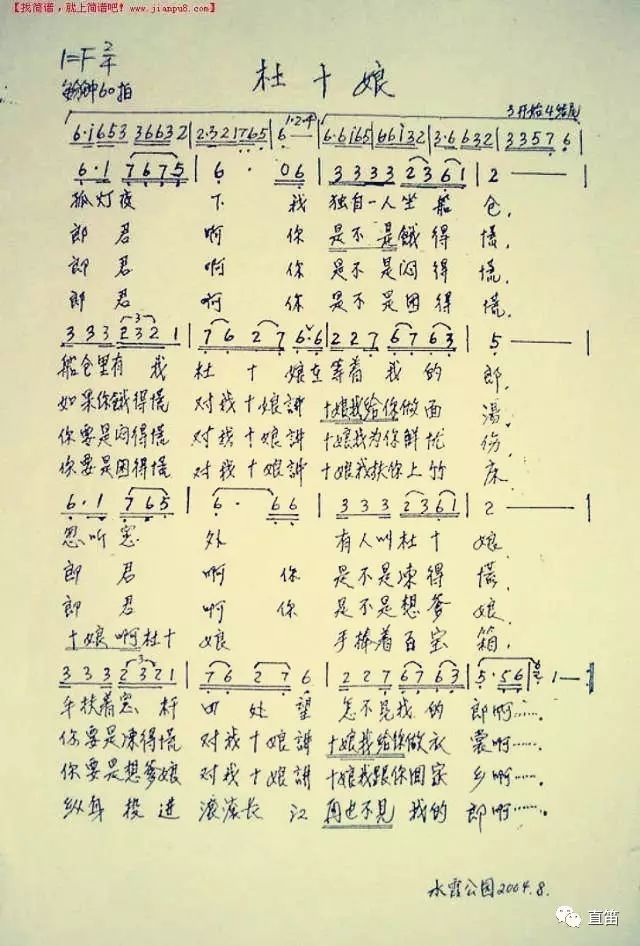 【找简谱，就上简谱吧！www.jianpu8.com】
1=F 2/4
每分钟60拍
杜十娘
3开始4结尾
6·i653 36632 | 2·321765 | 6 — | 1·2·4 6·6i65 | 66i32 | 3·6632 | 33576 |
6·1 7675 | 6· 06 | 3333 2361 | 2 — |
孤灯夜 下 我 独自一人坐 船 仓,
郎君 啊 你 是不是饿得 慌,
郎君 啊 你 是不是闷得 慌,
郎君 啊 你 是不是困得 慌,
333 2321 | 76 27 6·6 | 227 6763 | 5 — |
船仓里有 我 杜 十 娘在等着 我 的 郎,
如果你饿得慌 对我十娘讲 十娘我给你做面 汤,
你要是闷得慌 对我十娘讲 十娘我为你解忧 伤,
你要是困得慌 对我十娘讲 十娘我扶你上竹 床,
6·1 765 | 6· 66 | 333 2361 | 2 — |
忽听窗 外 有人叫杜十 娘,
郎君 啊 你 是不是冻得 慌,
郎君 啊 你 是不是想爹 娘,
十娘啊杜十 娘 手捧着百宝 箱,
333 2321 | 76 27 6 | 227 6763 | 5·56 | 1 — |
手扶着窗 杆 四处望 怎不见我 的 郎啊……
你要是冻得慌 对我十娘讲 十娘我给你做衣 裳啊……
你要是想爹娘 对我十娘讲 十娘我跟你回家 乡啊……
纵身投进 滚滚长 江 再也不见 我的 郎啊……
公园2004.8.
直笛